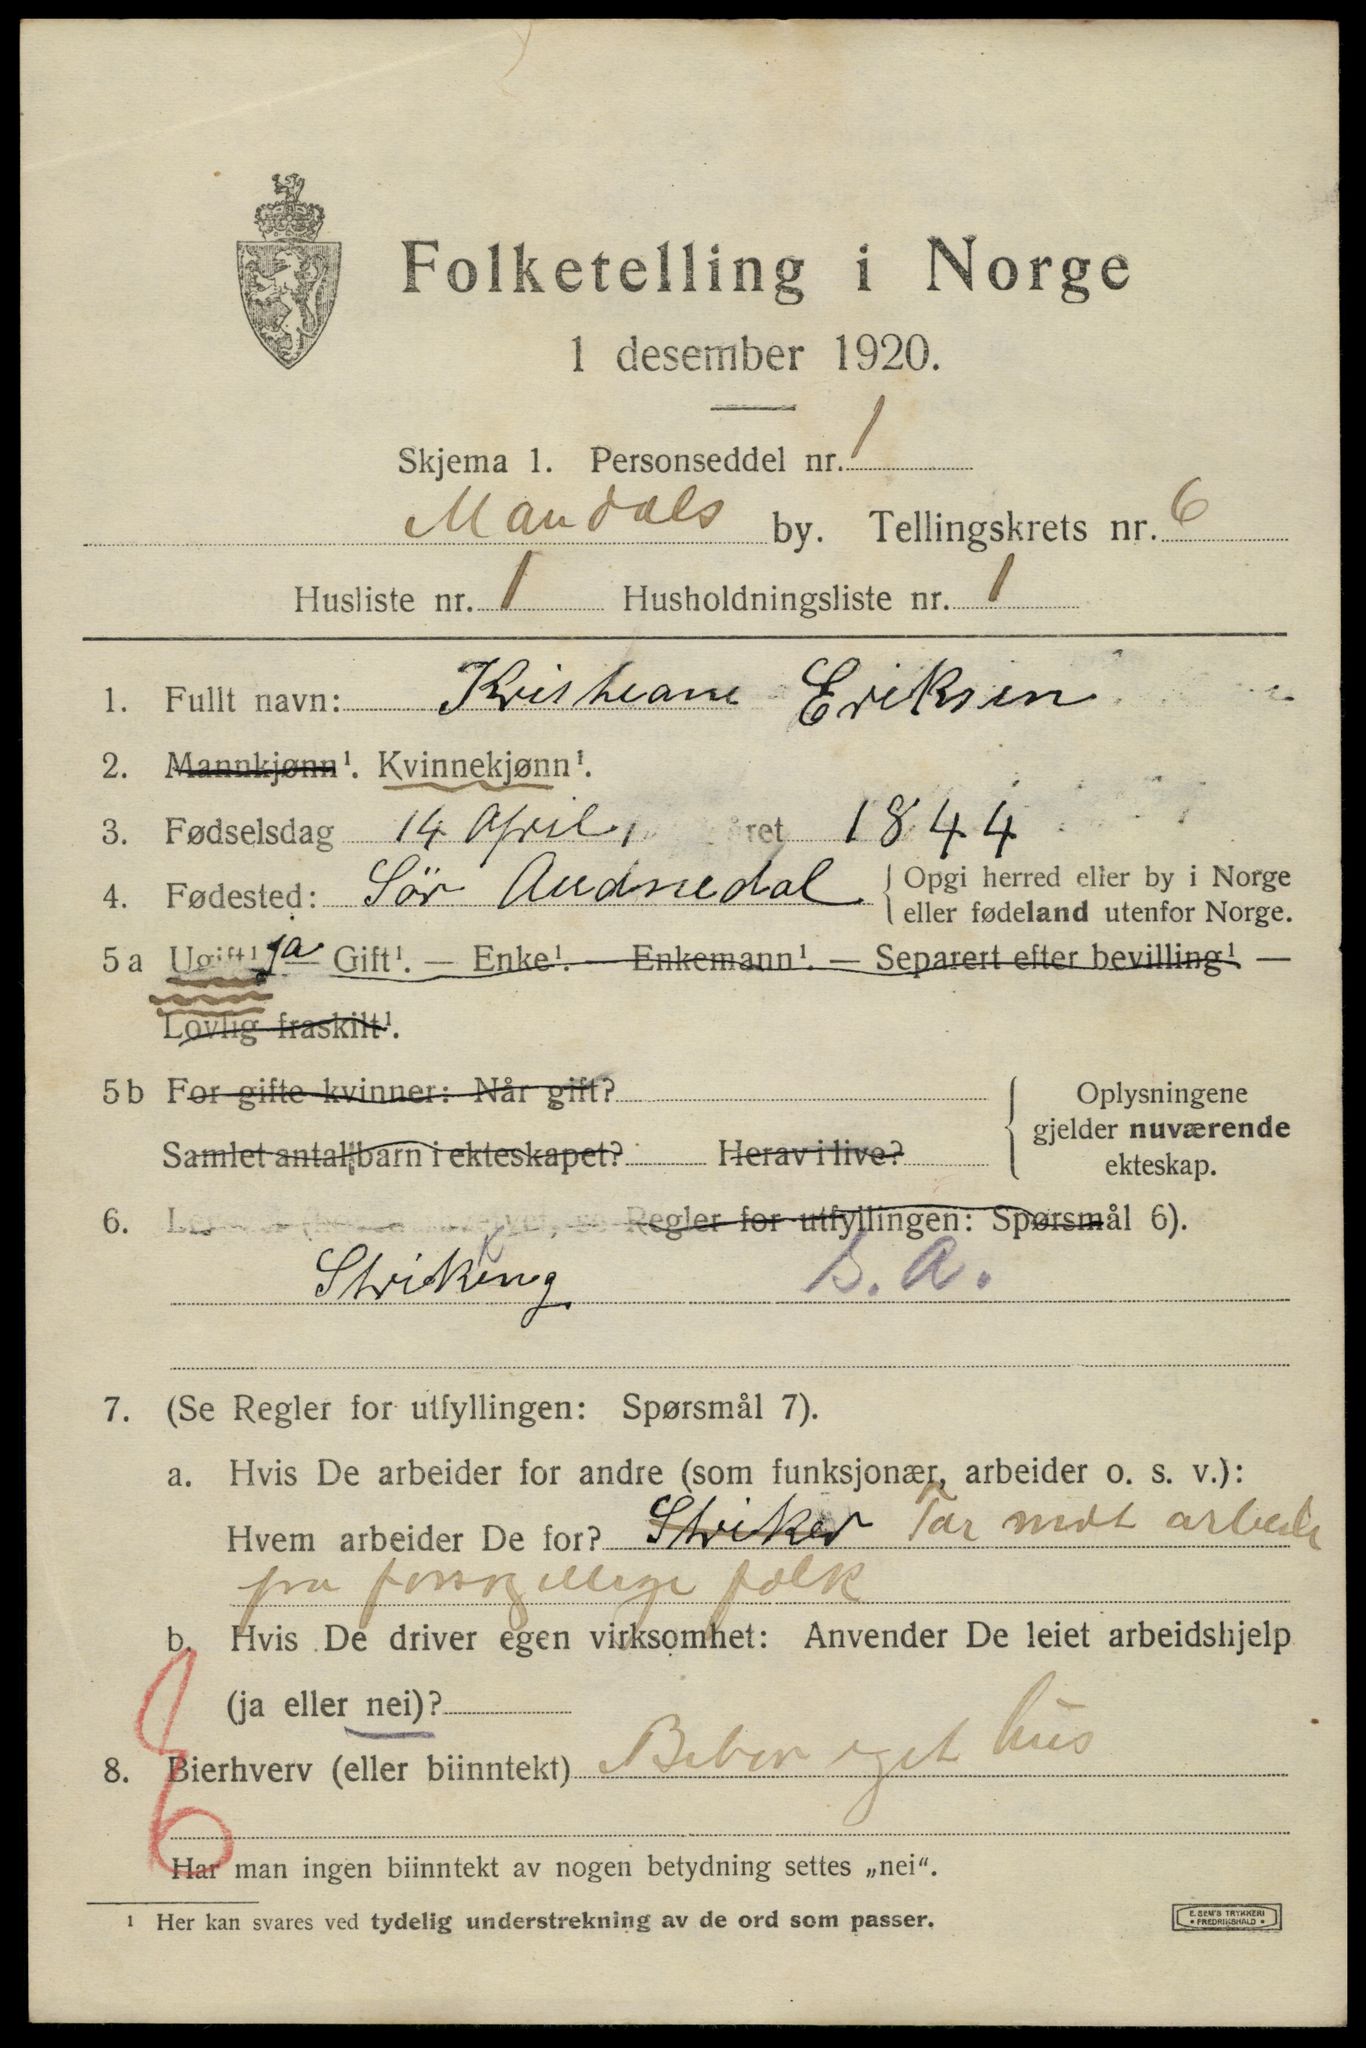 Folketelling i Norge
1 desember 1920.
Skjema 1. Personseddel nr. 1
Mandals by. Tellingskrets nr. 6
Husliste nr. 1 Husholdningsliste nr. 1
1. Fullt navn: Kristiane Eriksen
2. Mannkjønn¹. Kvinnekjønn¹.
3. Fødselsdag 14 April, året 1844
4. Fødested: Sör Audnedal { Opgi herred eller by i Norge
eller fødeland utenfor Norge.
5a Ugift¹ ja — Gift¹. — Enke¹. — Enkemann¹. — Separert efter bevilling¹ —
Lovlig fraskilt¹.
5b For gifte kvinner: Når gift?
Samlet antall barn i ekteskapet? Herav i live?
} Oplysningene
gjelder nuværende
ekteskap.
6. Regler for utfyllingen: Spørsmål 6).
Striking S. A.
7. (Se Regler for utfyllingen: Spørsmål 7).
a. Hvis De arbeider for andre (som funksjonær, arbeider o. s. v.):
Hvem arbeider De for? Striker Tar mot arbeide
fra forskjellige folk
b. Hvis De driver egen virksomhet: Anvender De leiet arbeidshjelp
(ja eller nei)?
8. Bierhverv (eller biinntekt) Bebor eget hus
Har man ingen biinntekt av nogen betydning settes „nei“.
¹ Her kan svares ved tydelig understrekning av de ord som passer.
E. SEM'S TRYKKERI
• FREDRIKSHALD •